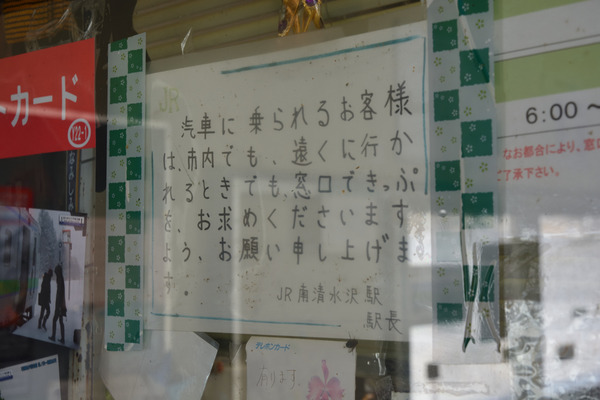 トカード
Y22-1
JR
汽車に乗られるお客様
は、市内でも、遠くに行か
れるときでも、窓口できっぷ
を、お求めくださいます
よう、お願い申し上げま
す。
JR南清水沢駅
駅長
6:00～
なお都合により、窓口
ご了承下さい。
テレホンカード
有ります